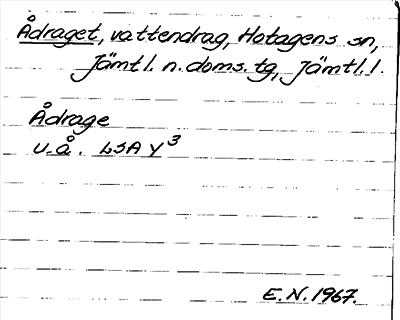 Ådraget, vattendrag, Hotagens sn,
Jämtl. n. doms. tg, Jämtl. l.
Ådrage
u. å. LSA Y³
E. N. 1967.